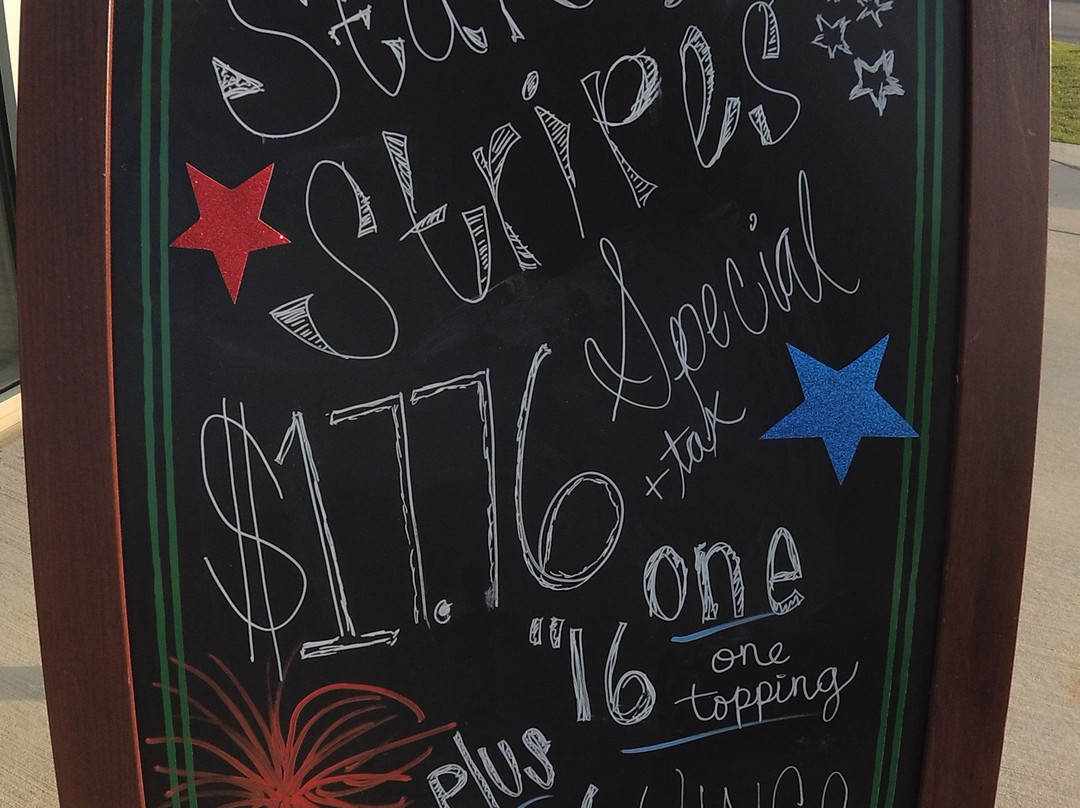 Stars
Stripes
Special
$17.76
+tax
one
"16
one
topping
plus